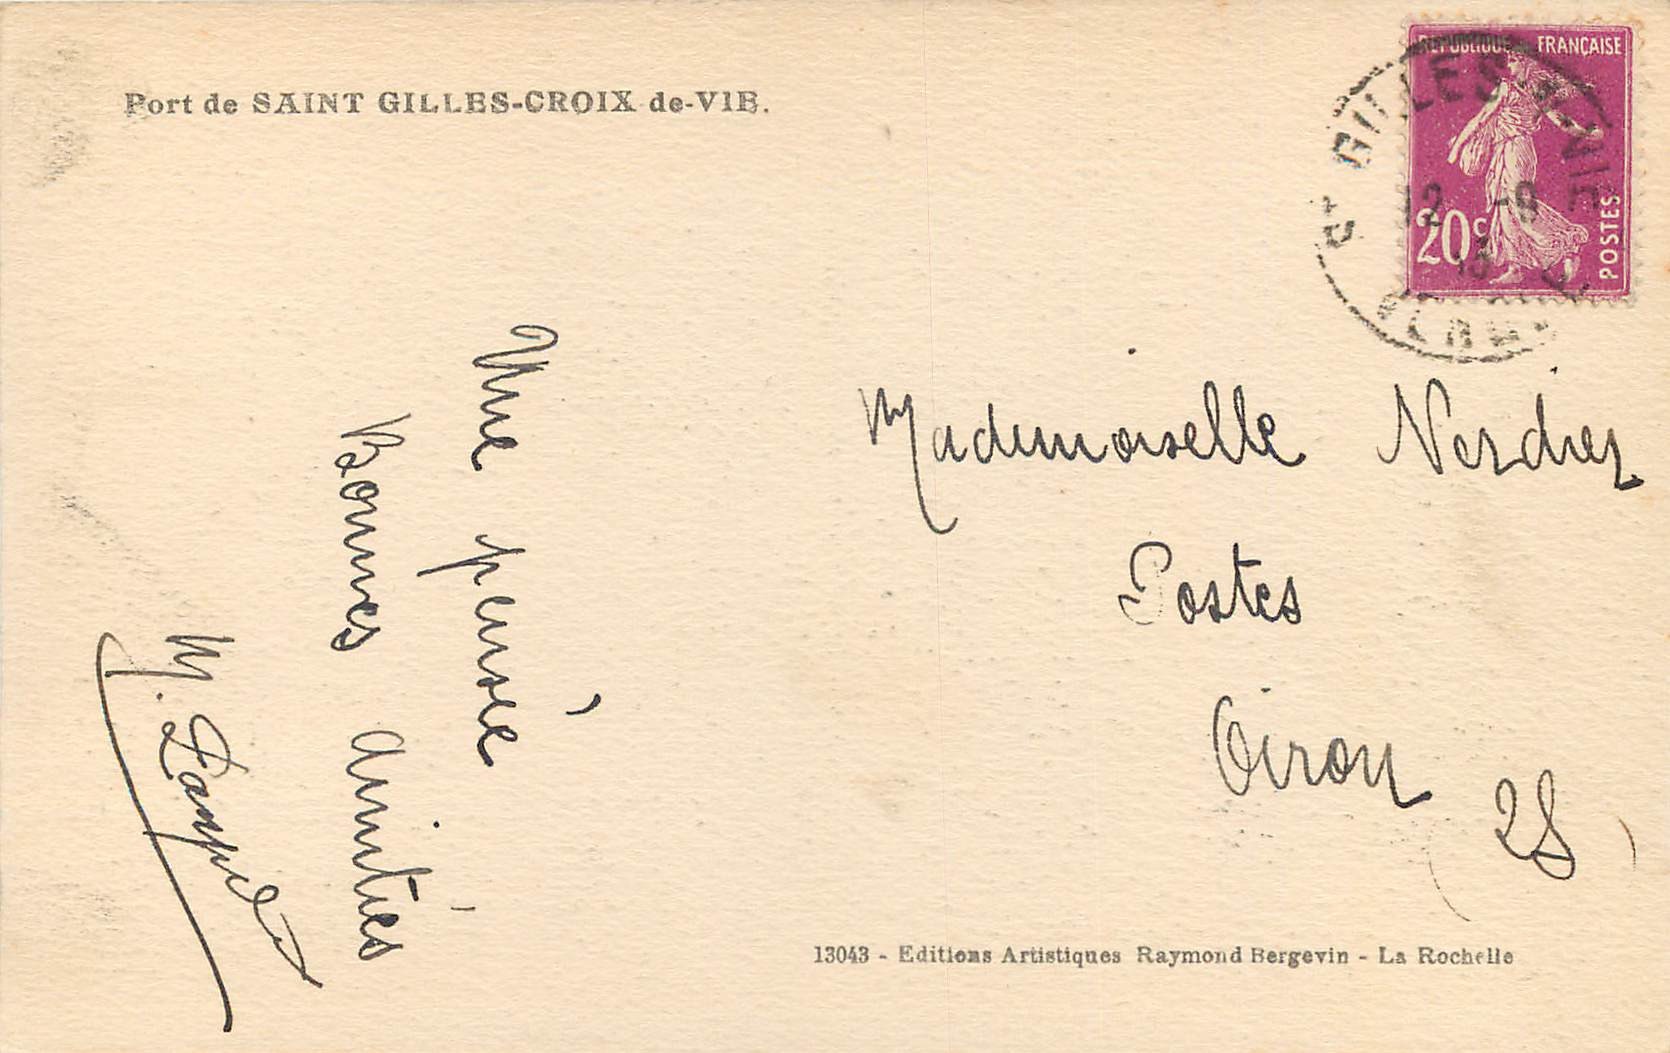 Port de SAINT GILLES-CROIX-de-VIE.
REPUBLIQUE FRANÇAISE
20c
POSTES
St GILLES S/VIE
12 -9
VENDEE
Une pensée
Bonnes amitiés
M.
Mademoiselle Verdier
Postes
Oiron
(2S)
13043 - Editions Artistiques Raymond Bergevin - La Rochelle